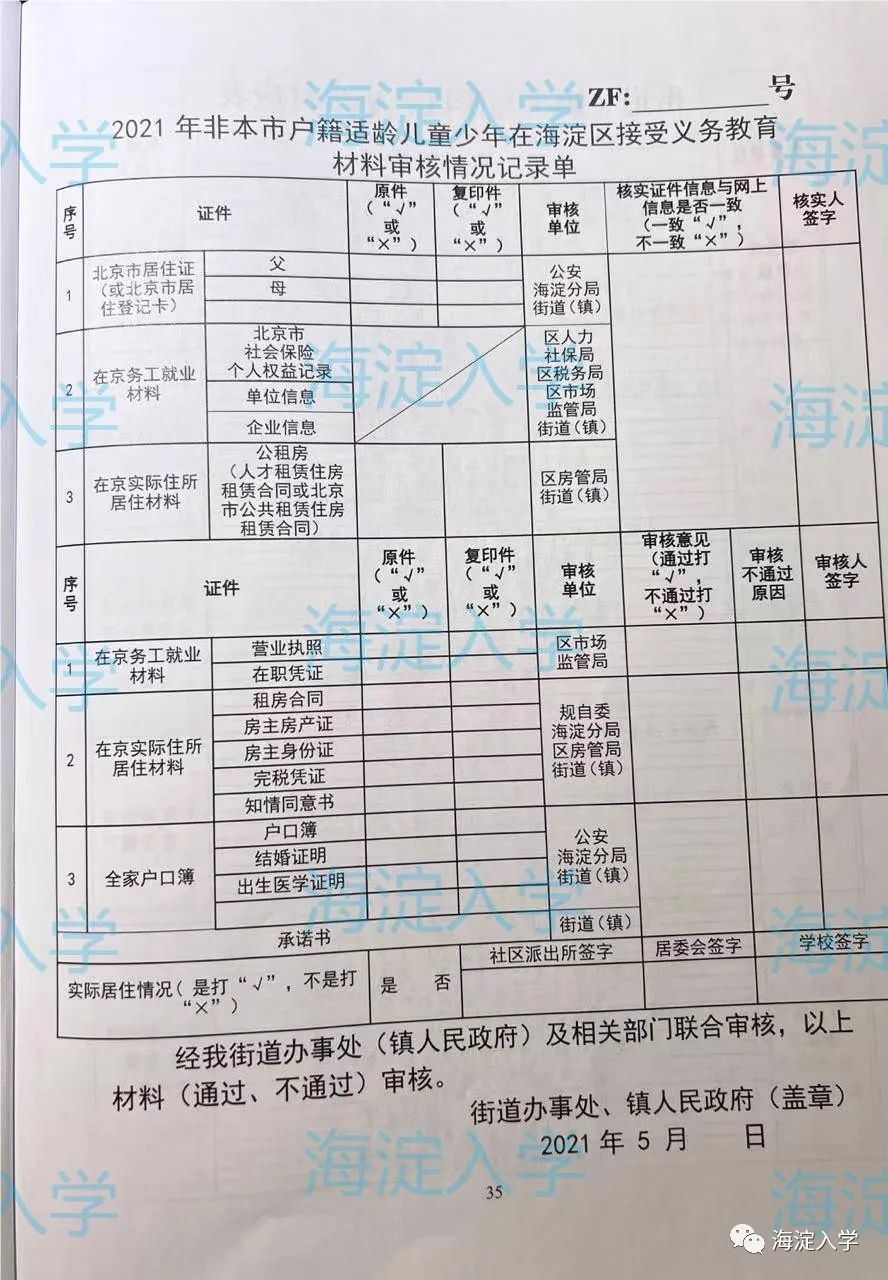 ZF:________号
2021 年非本市户籍适龄儿童少年在海淀区接受义务教育
材料审核情况记录单
序号
证件
原件
（“√”
或
“×”）
复印件
（“√”
或
“×”）
审核
单位
核实证件信息与网上
信息是否一致
（一致“√”，
不一致“×”）
核实人
签字
1
北京市居住证
（或北京市居
住登记卡）
父
母
公安
海淀分局
街道（镇）
2
在京务工就业
材料
北京市
社会保险
个人权益记录
单位信息
企业信息
区人力
社保局
区税务局
区市场
监管局
街道（镇）
3
在京实际住所
居住材料
公租房
（人才租赁住房
租赁合同或北京
市公共租赁住房
租赁合同）
区房管局
街道（镇）
序号
证件
原件
（“√”
或
“×”）
复印件
（“√”
或
“×”）
审核
单位
审核意见
（通过打
“√”，
不通过打
“×”）
审核
不通过
原因
审核人
签字
1
在京务工就业
材料
营业执照
在职凭证
区市场
监管局
2
在京实际住所
居住材料
租房合同
房主房产证
房主身份证
完税凭证
知情同意书
规自委
海淀分局
区房管局
街道（镇）
3
全家户口簿
户口簿
结婚证明
出生医学证明
公安
海淀分局
街道（镇）
承诺书
街道（镇）
实际居住情况（是打“√”，不是打
“×”）
是 否
社区派出所签字
居委会签字
学校签字
经我街道办事处（镇人民政府）及相关部门联合审核，以上
材料（通过、不通过）审核。
街道办事处、镇人民政府（盖章）
2021 年 5 月 日
35
海淀入学